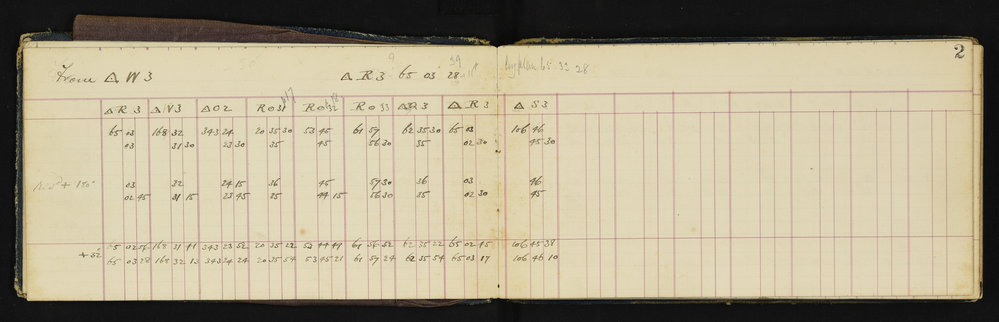 2
From △ W 3 △ R 3 65 03 28 65 33 28
△ R 3 △ N 3 △ O 2 R O 31 R O 32 R O 33 △ Q 3 △ R 3 △ S 3
65 03 168 32 343 24 20 35 30 53 45 61 57 62 35 30 65 03 106 46
03 31 30 23 30 35 45 56 30 35 02 30 45 30
+ 180° 03 32 24 15 36 45 57 30 36 03 46
02 45 31 15 23 45 35 44 15 56 30 35 02 30 45
65 02 56 168 31 41 343 23 52 20 35 22 53 44 49 61 56 52 62 35 22 65 02 45 106 45 38
+ 32 65 03 28 168 32 13 343 24 24 20 35 54 53 45 21 61 57 24 62 35 54 65 03 17 106 46 10